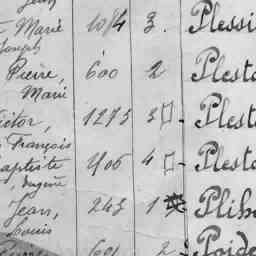 Jean
Marie 1084 3. Plessi
Joseph
Pierre, 600 2 Plesto
Marie
ictor, 1273 3 - Plesto
François
aptiste 406 4 - Plesto
Eugène
Jean, 243 1 Plih
Louis
601 2 - Poide